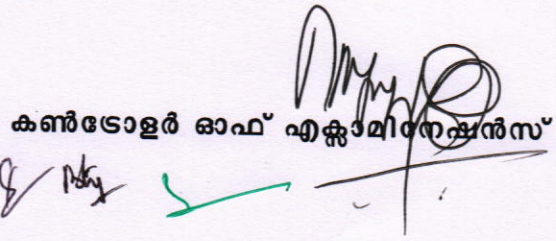 കൺട്രോളർ ഓഫ് എക്സാമിനേഷൻസ്